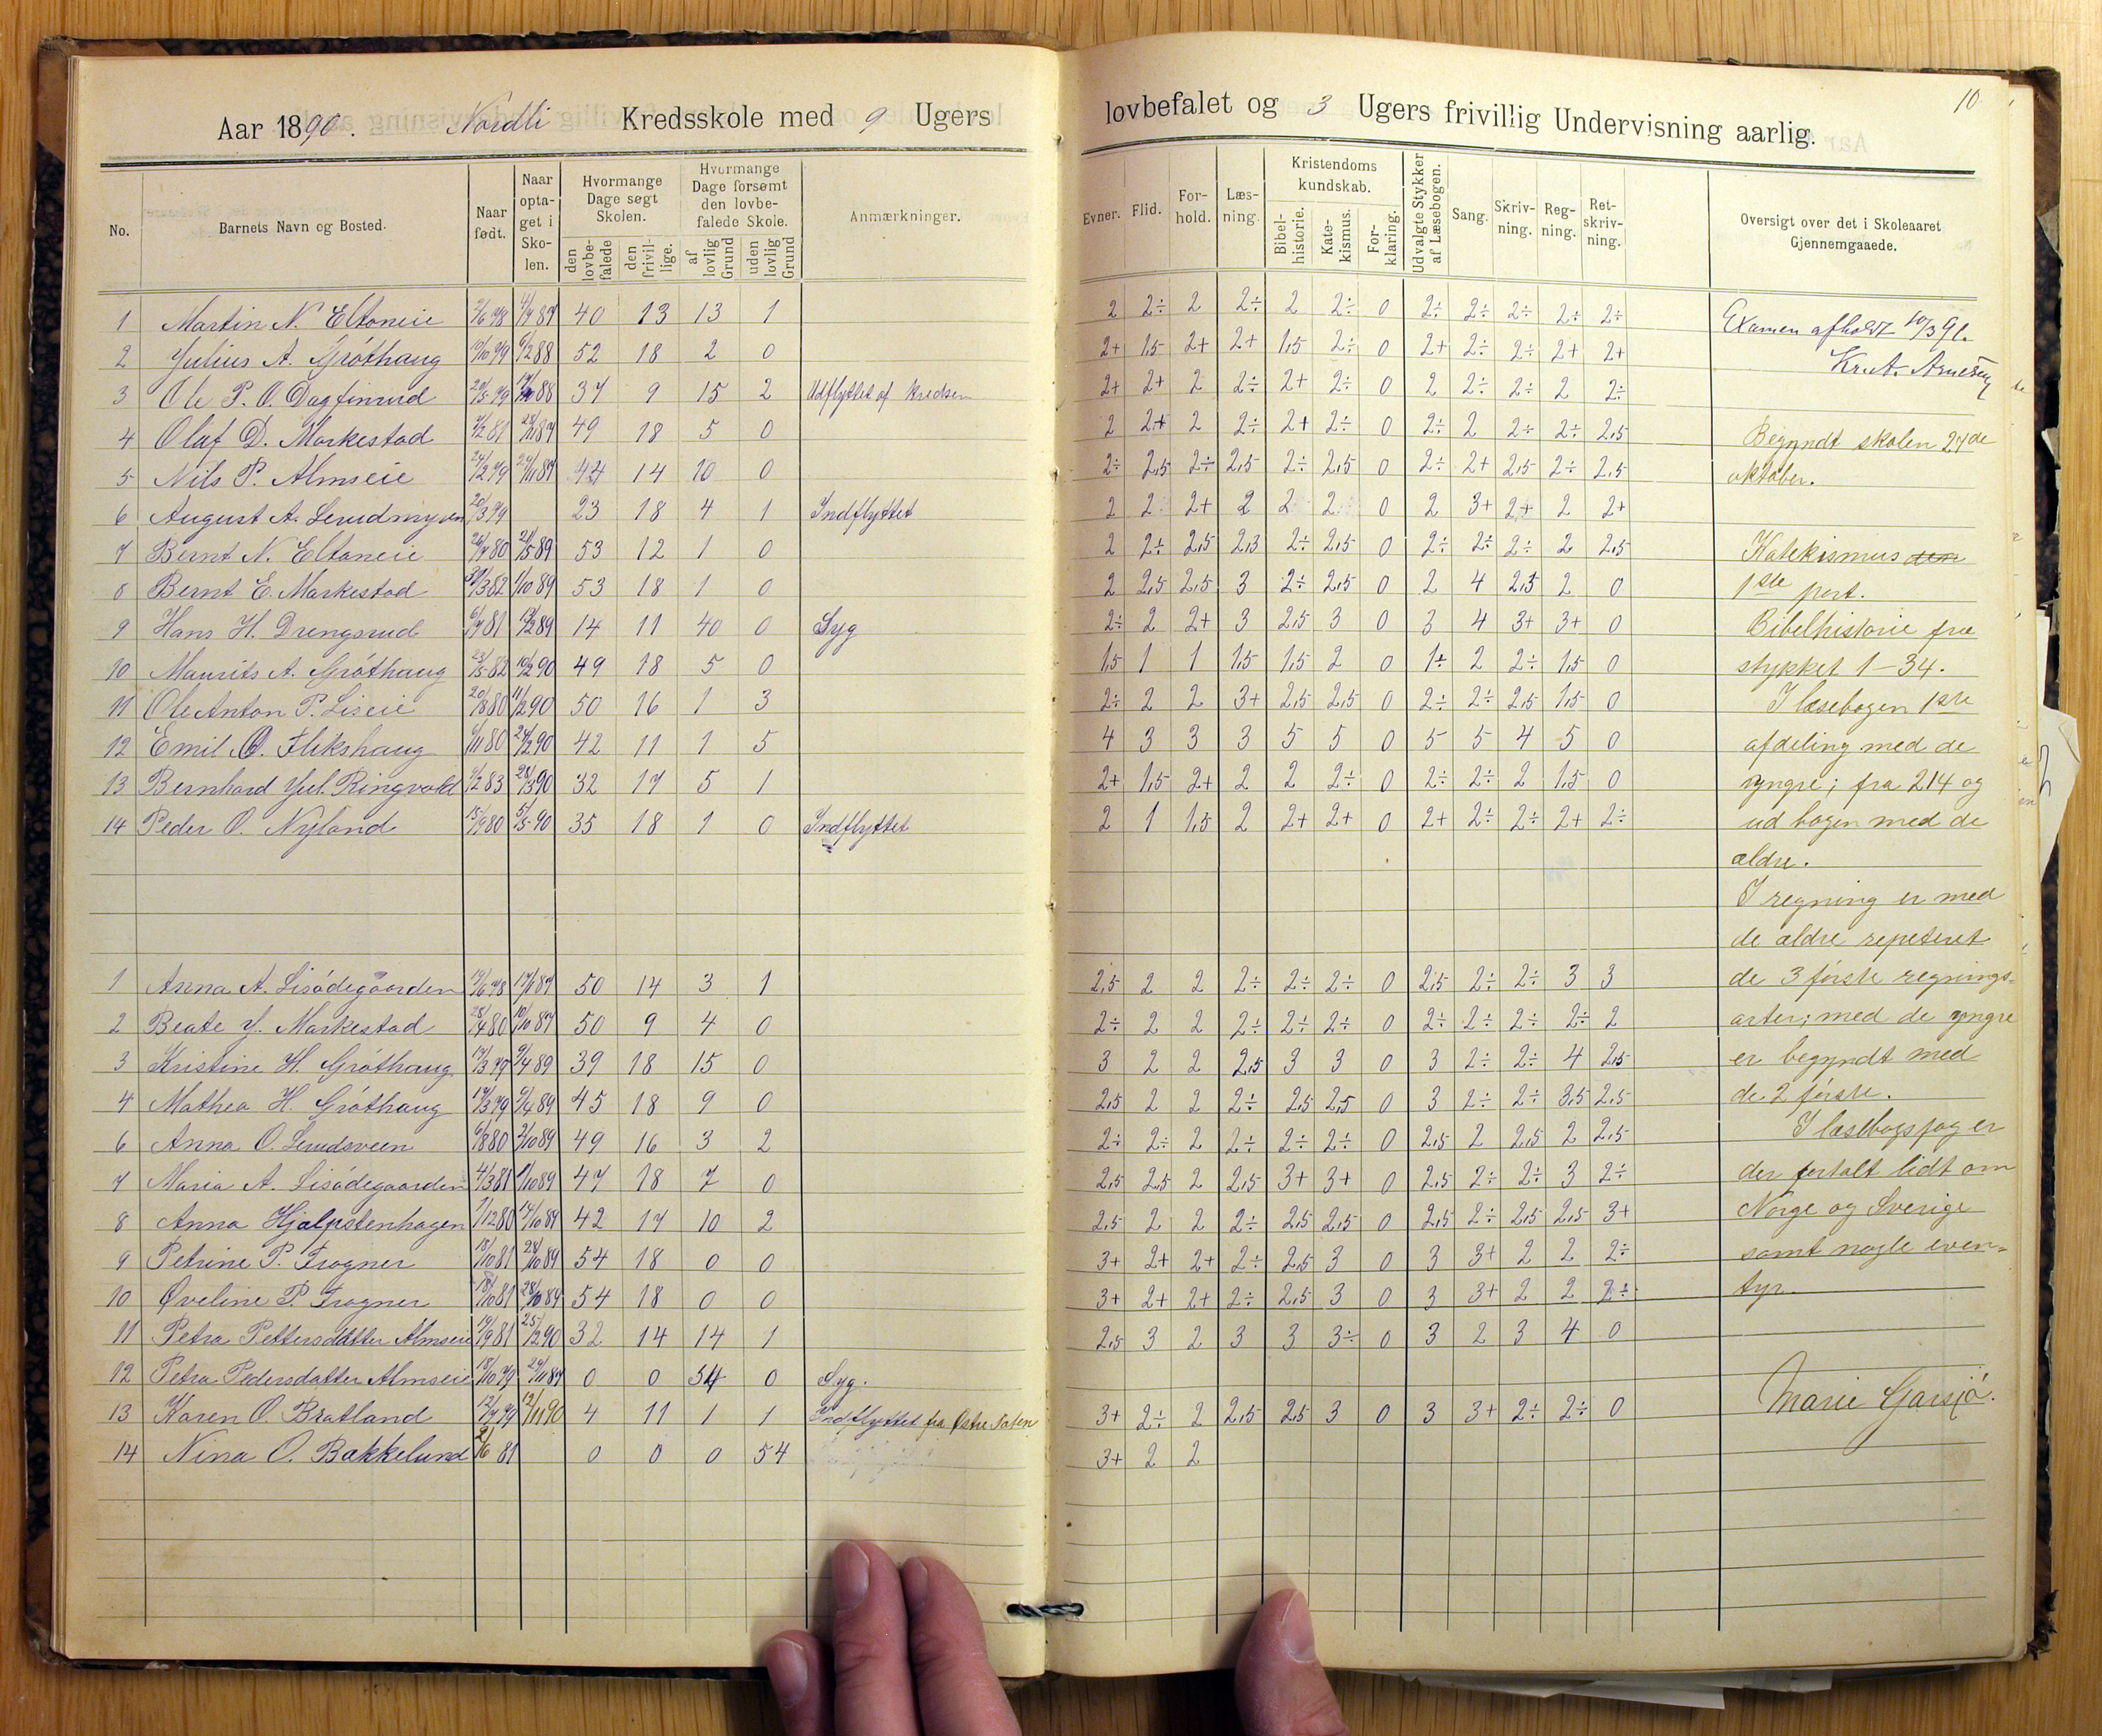 Aar 1890. Nordli Kredsskole med 9 Ugers lovbefalet og 3 Ugers frivillig Undervisning aarlig.
10
No. Barnets Navn og Bosted. Naar født. Naar optaget i Skolen. Hvormange Dage søgt Skolen. den lovbefalede den frivillige. Hvormange Dage forsømt den lovbefalede Skole. af lovlig Grund uden lovlig Grund Anmærkninger.
1 Martin N. Eltoneie 40 13 13 1
2 Julius A. Gróthaug 52 18 2 0
3 Ole P. O. Dagfinrud 37 9 15 2 Udflyttet af kredsen
4 Olaf D. Markestad 49 18 5 0
5 Nils P. Almseie 44 14 10 0
6 August A. 20/3 79 23 18 4 1 Indflyttet
7 Bernt N. Eltoneie 53 12 1 0
8 Bernt E. Markestad 1/10 89 53 18 1 0
9 Hans H. Drengsrud 14 11 40 0 Syg
10 Maurits A. Gróthaug 23/5 82 10/2 90 49 18 5 0
11 Ole Anton P. Liseie 20/8 80 11/2 90 50 16 1 3
12 Emil O. Flikshaug 42 11 1 5
13 Bernhard Jul. Ringvold 32 17 5 1
14 Peder O. Nyland 15/9 80 5/5 90 35 18 1 0 Indflyttet
1 Anna A. Lisódegaarden 50 14 3 1
2 Beate J. Markestad 28/4 80 50 9 4 0
3 Kristine H. Gróthaug 39 18 15 0
4 Mathea H. Gróthaug 45 18 9 0
6 Anna O. Lundsveen 49 16 3 2
7 Maria A. Lisódegaarden 4/3 81 1/10 89 47 18 7 0
8 Anna Hjalpstenhagen 42 17 10 2
9 Petrine P. Frogner 18/10 81 28/10 89 54 18 0 0
10 Øveline P. Frogner 18/10 81 28/10 89 54 18 0 0
11 Petra Pettersdatter Almseie 19/9 81 25/2 90 32 14 14 1
12 Petra Pedersdatter Almseie 18/10 79 0 0 54 0 Syg.
13 Karen O. Bratland 12/11 90 4 11 1 1 Indflyttet fra Østre Toten
14 Nina O. Bakkelund 0 0 0 54
Evner. Flid. Forhold. Læsning. Kristendomskundskab. Bibelhistorie. Katekismus. Forklaring. Udvalgte Stykker af Læsebogen. Sang. Skrivning. Regning. Retskrivning. Oversigt over det i Skoleaaret Gjennemgaaede.
2 2÷ 2 2÷ 2 2÷ 0 2÷ 2÷ 2÷ 2÷ 2÷
2+ 1,5 2+ 2+ 1,5 2÷ 0 2+ 2÷ 2÷ 2+ 2+
2+ 2+ 2 2÷ 2+ 2÷ 0 2 2÷ 2÷ 2 2÷
2 2+ 2 2÷ 2+ 2÷ 0 2÷ 2 2÷ 2÷ 2,5
2÷ 2,5 2÷ 2,5 2÷ 2,5 0 2÷ 2+ 2,5 2÷ 2,5
2 2 2+ 2 2 2 0 2 3+ 2+ 2 2+
2 2÷ 2,5 2,3 2÷ 2,5 0 2÷ 2÷ 2÷ 2 2,5
2 2,5 2,5 3 2÷ 2,5 0 2 4 2,5 2 0
2÷ 2 2+ 3 2,5 3 0 3 4 3+ 3+ 0
1,5 1 1 1,5 1,5 2 0 1÷ 2 2÷ 1,5 0
2÷ 2 2 3+ 2,5 2,5 0 2÷ 2÷ 2,5 1,5 0
4 3 3 3 5 5 0 5 5 4 5 0
2+ 1,5 2+ 2 2 2÷ 0 2÷ 2÷ 2 1,5 0
2 1 1,5 2 2+ 2+ 0 2+ 2÷ 2÷ 2+ 2÷
2,5 2 2 2÷ 2÷ 2÷ 0 2,5 2÷ 2÷ 3 3
2÷ 2 2 2÷ 2÷ 2÷ 0 2÷ 2÷ 2÷ 2÷ 2
3 2 2 2,5 3 3 0 3 2÷ 2÷ 4 2,5
2,5 2 2 2÷ 2,5 2,5 0 3 2÷ 2÷ 3,5 2,5
2÷ 2÷ 2 2÷ 2÷ 2÷ 0 2,5 2 2,5 2 2,5
2,5 2,5 2 2,5 3+ 3+ 0 2,5 2÷ 2÷ 3 2÷
2,5 2 2 2÷ 2,5 2,5 0 2,5 2÷ 2,5 2,5 3+
3+ 2+ 2+ 2÷ 2,5 3 0 3 3+ 2 2 2÷
3+ 2+ 2+ 2÷ 2,5 3 0 3 3+ 2 2 2÷
2,5 3 2 3 3 3÷ 0 3 2 3 4 0
3+ 2÷ 2 2,5 2,5 3 0 3 3+ 2÷ 2÷ 0
3+ 2 2
Examen afholdt 10/3 91.
Kr. A. Arnesen
Begyndt skolen 27de
oktober.
Katekismus den
1ste part.
Bibelhistorie fra
stykket 1-34.
I læsebogen 1ste
afdeling med de
yngre; fra 214 og
ud bogen med de
ældre.
I regning er med
de ældre repeteret
de 3 förste regnings-
arter; med de yngre
er begyndt med
de 2 förste.
I læsebogsfag er
der fortalt lidt om
Norge og Sverige
samt nogle even-
tyr.
Marie Garsjó.